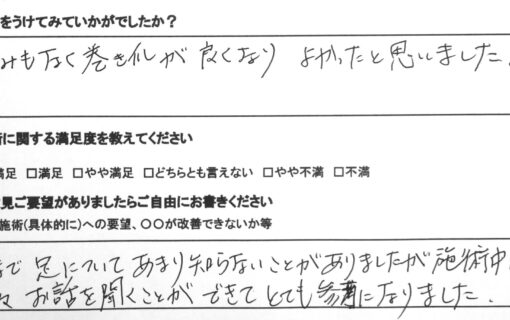 をうけてみていかがでしたか？
みもなく巻き爪が良くなり よかったと思いました。
に関する満足度を教えてください
足 □満足 □やや満足 □どちらとも言えない □やや不満 □不満
見ご要望がありましたらご自由にお書きください
施術(具体的に)への要望、〇〇が改善できないか等
で 足について あまり知らないことがありましたが施術中
お話を聞くことができてとても参考になりました.